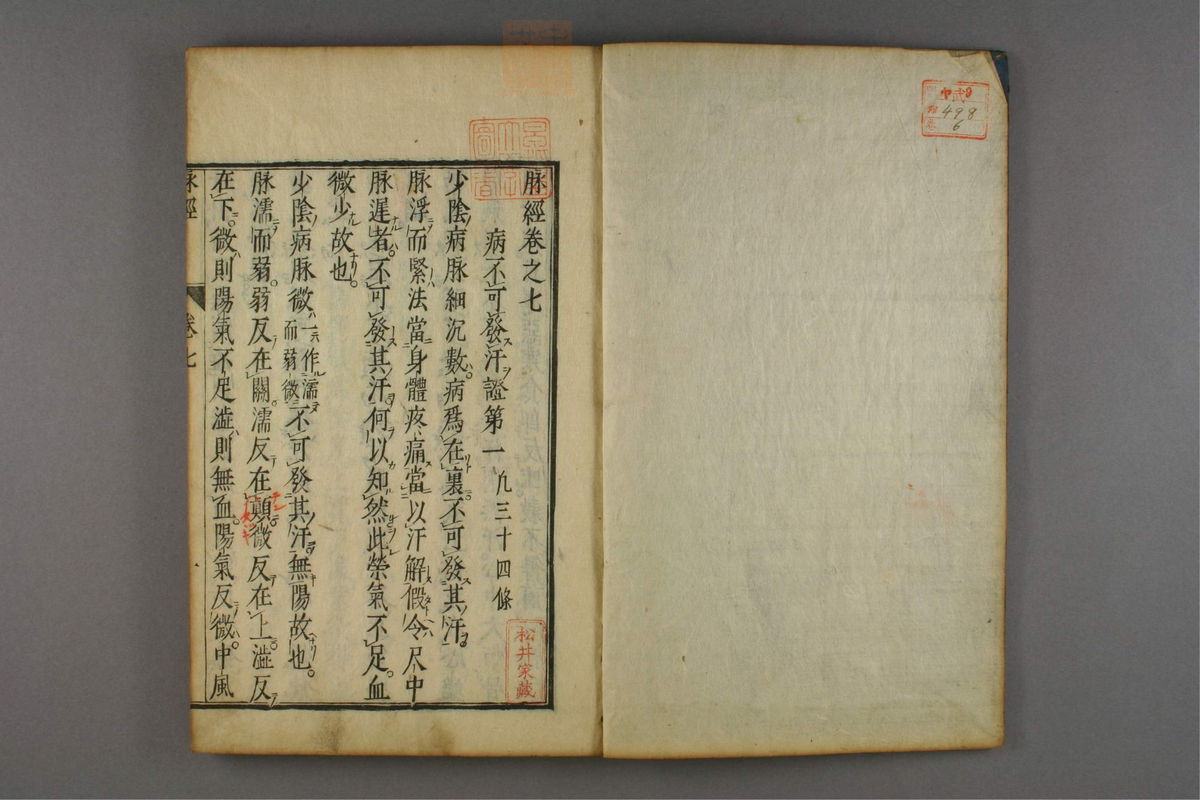 脉經卷之七
病不可發汗證第一　凢三十四條
少陰病脉細沉數病爲在裏不可發其汗
脉浮而緊法當身體疼痛當以汗解假令尺中
脉遲者不可發其汗何以知然此榮氣不足血
微少故也
少陰病脉微一作濡而弱微不可發其汗無陽故也
脉濡而弱弱反在關濡反在顚微反在上澁反
在下微則陽氣不足澁則無血陽氣反微中風
脉經　卷七　一
松井家藏
498
6